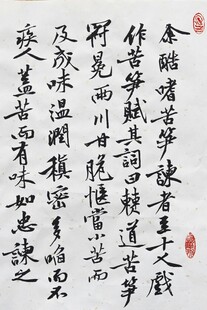 余酷嗜苦笋諫者至十人戲
作苦笋賦其詞曰棘道苦笋
冠冕两川甘脆愜當小苦而
及成味温潤縝密多啗而不
疾人蓋苦而有味如忠諫之